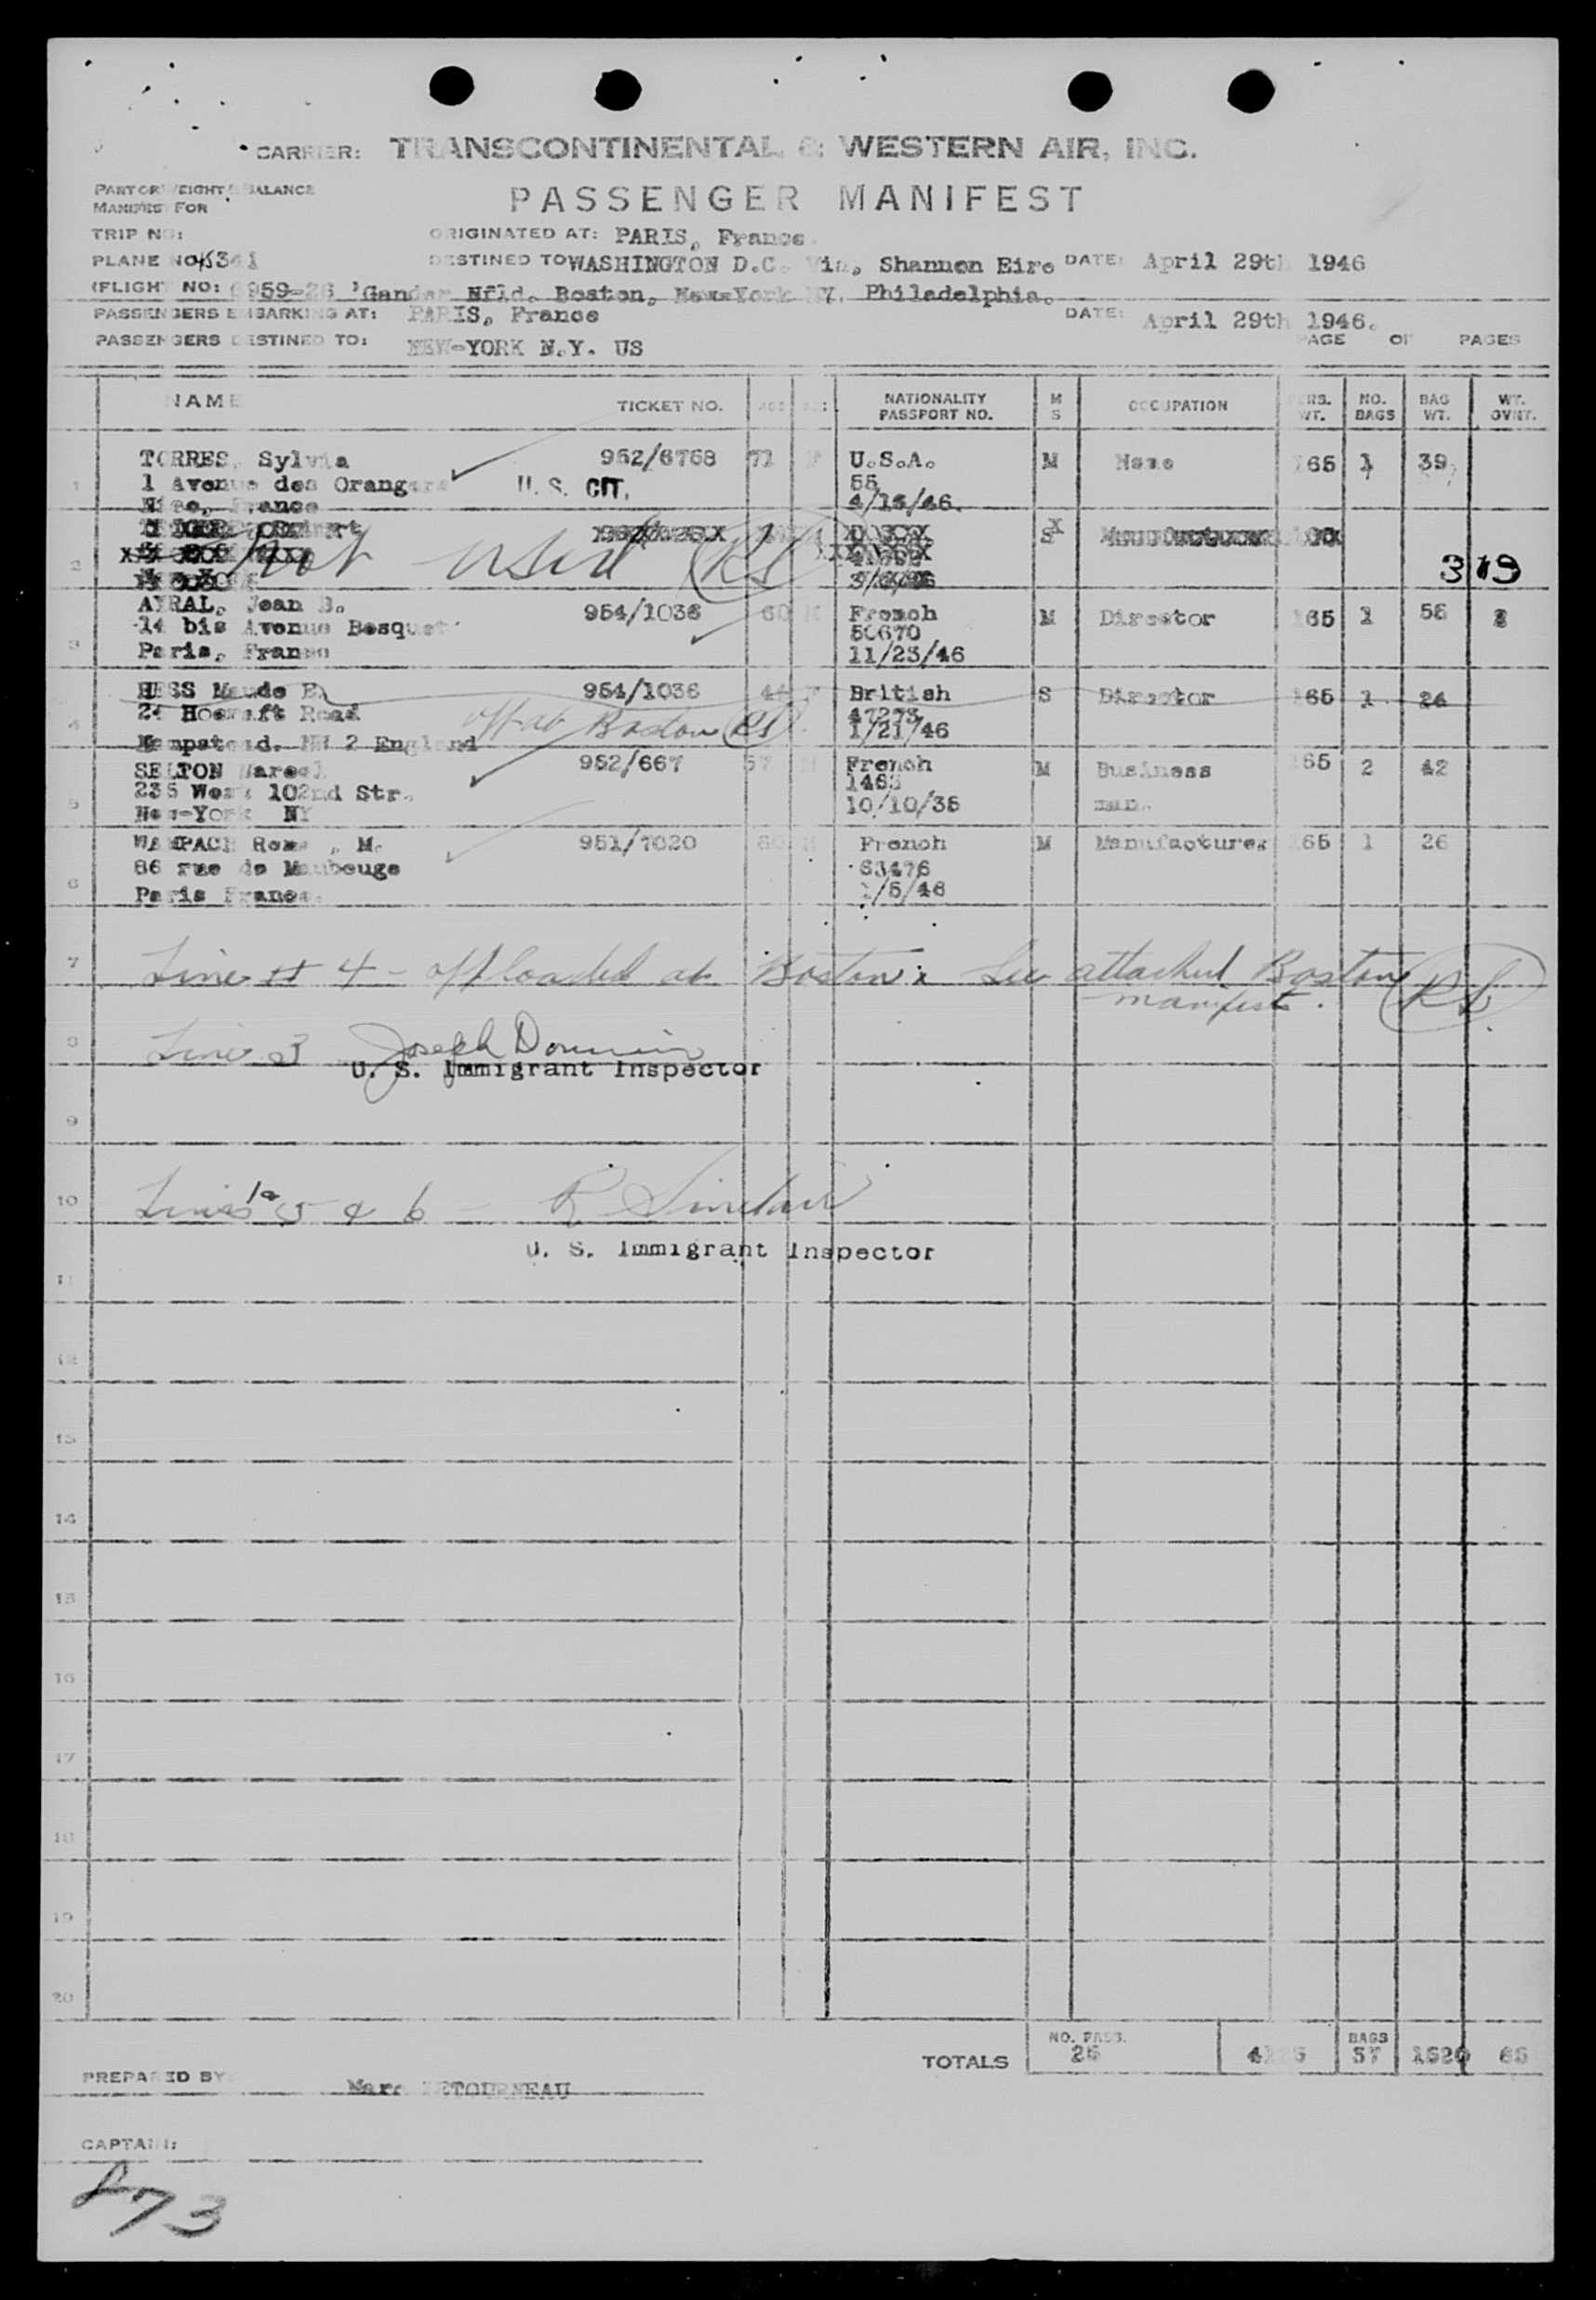 CARRIER: TRANSCONTINENTAL & WESTERN AIR, INC.
PART OF WEIGHT & BALANCE
MANIFEST FOR
PASSENGER MANIFEST
TRIP NO:
ORIGINATED AT: PARIS, France.
PLANE NO: 45341
DESTINED TO WASHINGTON D.C. Via, Shannon Eire DATE: April 29th 1946
FLIGHT NO: 6959-26 Gander Nfld. Boston, New-York NY. Philadelphia.
PASSENGERS EMBARKING AT: PARIS, France
DATE: April 29th 1946.
PASSENGERS DESTINED TO: NEW-YORK N.Y. US
PAGE OF PAGES
NAME TICKET NO. AGE SEX NATIONALITY PASSPORT NO. M S OCCUPATION PERS. WT. NO. BAGS BAG WT. WT. OVHT.
1 TORRES, Sylvia 952/6768 71 F U.S.A. M Home 165 1 39
1 Avenue des Orangers U. S. CIT. 55
Nice, France 4/15/46.
2 Not used RS S
319
3 AYRAL, Jean B. 954/1036 60 M French M Director 165 1 58
14 bis Avenue Bosquet 50670
Paris, France 11/23/46
4 HESS Maude E. 954/1036 44 F British S Director 165 1 24
24 Hocraft Road off at Boston RS 47273
Hampstead. NW 2 England 1/21/46
5 SELTON Marcel 952/667 57 M French M Business 165 2 42
235 West 102nd Str. 1463 man.
New-York NY 10/10/35
6 WAMPACH M. 951/7020 60 M French M Manufacturer 165 1 26
86 rue de Maubeuge 63476
Paris France. 1/5/46
7 Line # 4 - offloaded at Boston. See attached Boston RS
manifest.
8 Line 3 Joseph
U. S. Immigrant Inspector
9
10 Lines 1a 5 & 6 - R Sinclair
U. S. Immigrant Inspector
11
12
13
14
15
16
17
18
19
20
TOTALS NO. PASS. 25 BAGS 37 1520 65
PREPARED BY: Marc LETOURNEAU
CAPTAIN:
873